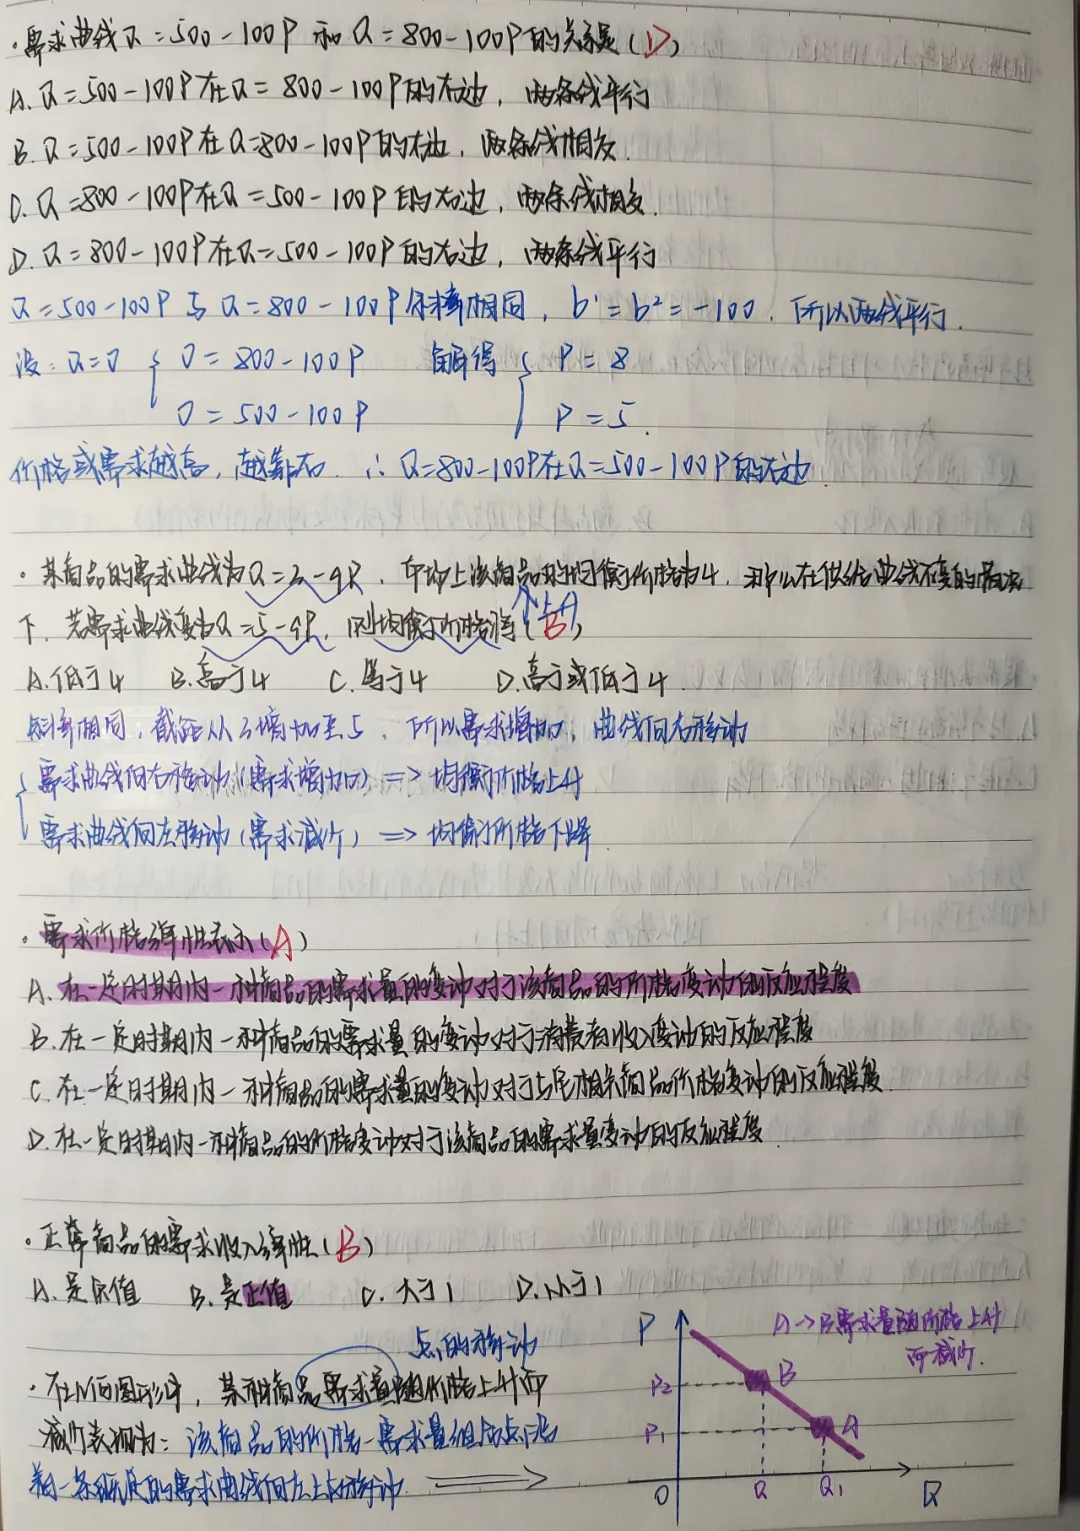 · 需求曲线Q=500-100P 和 Q=800-100P的关系是(D)
A. Q=500-100P在Q=800-100P的右边，两条线平行
B. Q=500-100P在Q=800-100P的右边，两条线相交.
C. Q=800-100P在Q=500-100P的右边，两条线相交.
D. Q=800-100P在Q=500-100P的右边，两条线平行
Q=500-100P与Q=800-100P斜率相同，b¹=b²=-100. 所以两线平行.
设：Q=0 { 0=800-100P 解得 { P=8
0=500-100P P=5.
价格或需求越高，越靠右. ∴Q=800-100P在Q=500-100P的右边.
· 某商品的需求曲线为Q=3-9P，市场上该商品的均衡价格为4，那么在供给曲线不变的情况
下，若需求曲线变为Q=5-9P，则均衡价格将(B)
上升
A.低于4 B.高于4 C.等于4 D.高于或低于4
斜率相同，截距从3增加至5，所以需求增加，曲线向右移动
{ 需求曲线向右移动(需求增加) => 均衡价格上升
需求曲线向左移动(需求减少) => 均衡价格下降
· 需求价格弹性表示(A)
A. 在一定时期内一种商品的需求量的变动对于该商品的价格变动的反应程度
B. 在一定时期内一种商品的需求量的变动对于消费者收入变动的反应程度
C. 在一定时期内一种商品的需求量的变动对于与它相关商品价格变动的反应程度.
D. 在一定时期内一种商品的价格变动对于该商品的需求量变动的反应程度.
· 正常商品的需求收入弹性(B)
A. 是负值 B. 是正值 C. 大于1 D.小于1
点的移动
· 在几何图形中，某种商品需求量随价格上升而
减少表现为：该商品的价格-需求量组合点沿
着一条既定的需求曲线向左上方移动.
P
A→B需求量随价格上升
而减少.
P2 B
P1 A
O Q Q1 Q